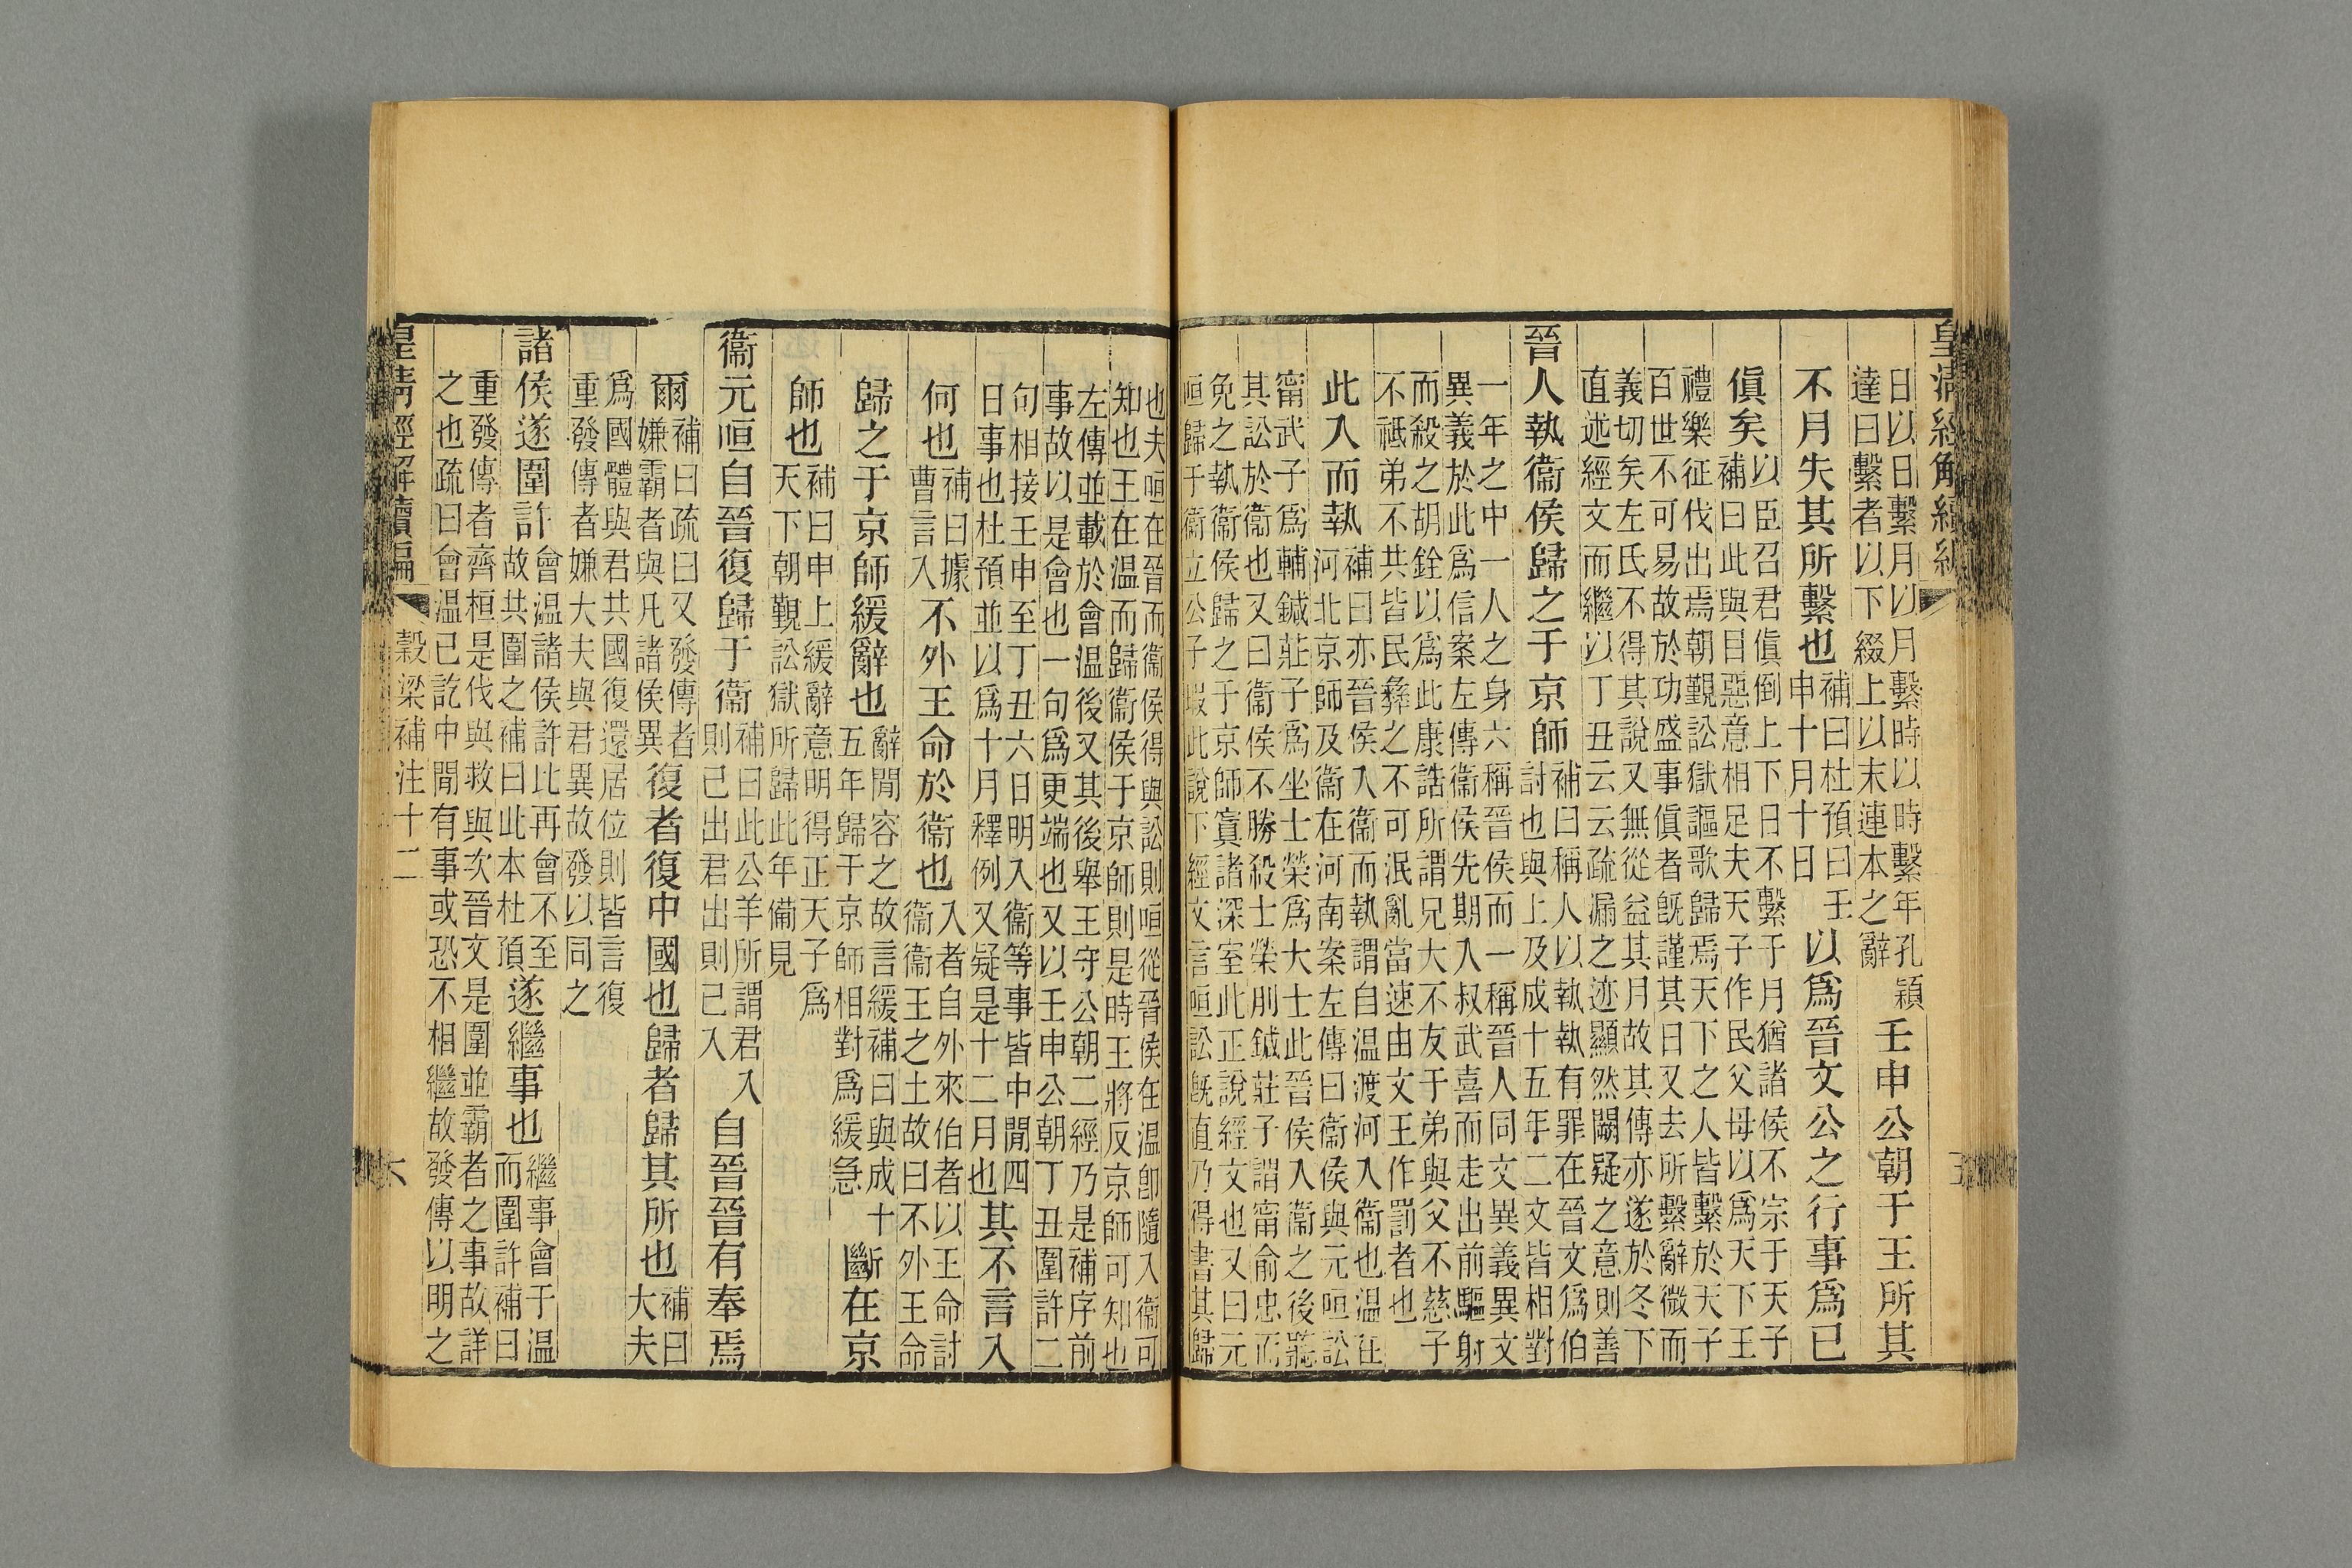 皇清經解續編
日以日繫月以月繫時以時繫年孔穎
達曰繫者以下綴上以末連本之辭
壬申公朝于王所其
不月失其所繫也
補曰杜預曰壬
申十月十日
以爲晉文公之行事爲已
傎矣
以臣召君傎倒上下日不繫于月猶諸侯不宗于天子
補曰此與目惡意相足夫天子作民父母以爲天下王
禮樂征伐出焉朝覲訟獄謳歌歸焉天下之人皆繫於天子
百世不可易故於功盛事傎者旣謹其日又去所繫辭微而
義切矣左氏不得其說又無從益其月故其傳亦遂於冬下
直述經文而繼以丁丑云云疏漏之迹顯然闕疑之意則善
晉人執衞侯歸之于京師
補曰稱人以執執有罪在晉文爲伯
討也與上及成十五年二文皆相對
一年之中一人之身六稱晉侯而一稱晉人同文異義異文
異義於此爲信案左傳衞侯先期入叔武喜而走出前驅射
而殺之胡銓以爲此康誥所謂兄大不友于弟與父不慈子
不祗弟不共皆民彝之不可泯亂當速由文王作罰者也
此入而執
補曰亦晉侯入衞而執謂自温渡河入衞也温在
河北京師及衞在河南案左傳曰衞侯與元咺訟
甯武子爲輔鍼莊子爲坐士榮爲大士此晉侯入衞之後聽
其訟於衞也又曰衞侯不勝殺士榮刖鍼莊子謂甯俞忠而
免之執衞侯歸之于京師寘諸深室此正說經文也又曰元
咺歸于衞立公子瑕此說下經文言咺訟旣直乃得書其歸
也夫咺在晉而衞侯得與訟則咺從晉侯在温卽隨入衞可
知也王在温而歸衞侯于京師則是時王將反京師可知也
左傳並載於會温後又其後舉王守公朝二經乃是補序前
事故以是會也一句爲更端也又以壬申公朝丁丑圍許二
句相接壬申至丁丑六日明入衞等事皆中閒四
日事也杜預並以爲十月釋例又疑是十二月也
其不言入
何也
補曰據
曹言入
不外王命於衞也
入者自外來伯者以王命討
衞衞王之土故曰不外王命
歸之于京師緩辭也
辭閒容之故言緩補曰與成十
五年歸于京師相對爲緩急
斷在京
師也
補曰申上緩辭意明得正天子爲
天下朝覲訟獄所歸此年備見
衞元咺自晉復歸于衞
補曰此公羊所謂君入
則己出君出則己入
自晉晉有奉焉
爾
補曰疏曰又發傳者
嫌霸者與凡諸侯異
復者復中國也歸者歸其所也
補曰
大夫
爲國體與君共國復還居位則皆言復
重發傳者嫌大夫與君異故發以同之
諸侯遂圍許
會温諸侯許比再會不至
故共圍之補曰此本杜預
遂繼事也
繼事會于温
而圍許補曰
重發傳者齊桓是伐與救與次晉文是圍並霸者之事故詳
之也疏曰會温已訖中閒有事或恐不相繼故發傳以明之
皇淸經解續編
穀梁補注十二
六